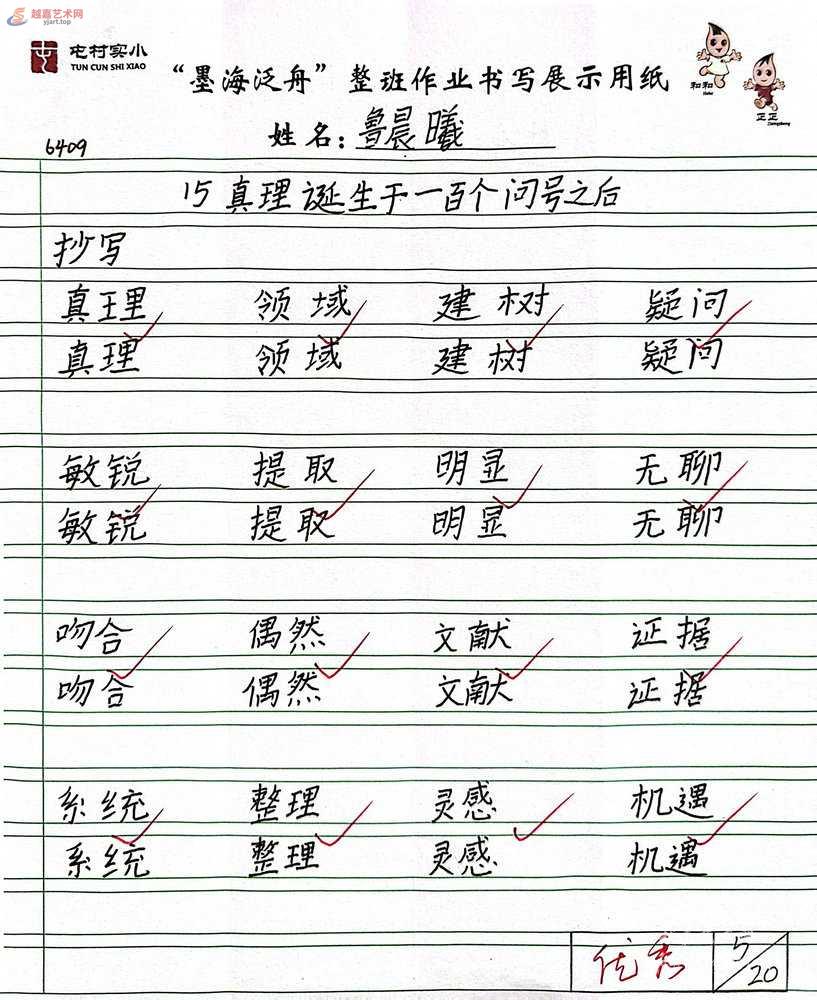 越嘉艺术网
yjart.top
屯村实小
TUN CUN SHI XIAO
“墨海泛舟”整班作业书写展示用纸
和和
Hehe
正正
Zhengzheng
6409
姓名：鲁晨曦
15 真理诞生于一百个问号之后
抄写
真理 领域 建树 疑问
真理 领域 建树 疑问
敏锐 提取 明显 无聊
敏锐 提取 明显 无聊
吻合 偶然 文献 证据
吻合 偶然 文献 证据
系统 整理 灵感 机遇
系统 整理 灵感 机遇
优秀 5/20